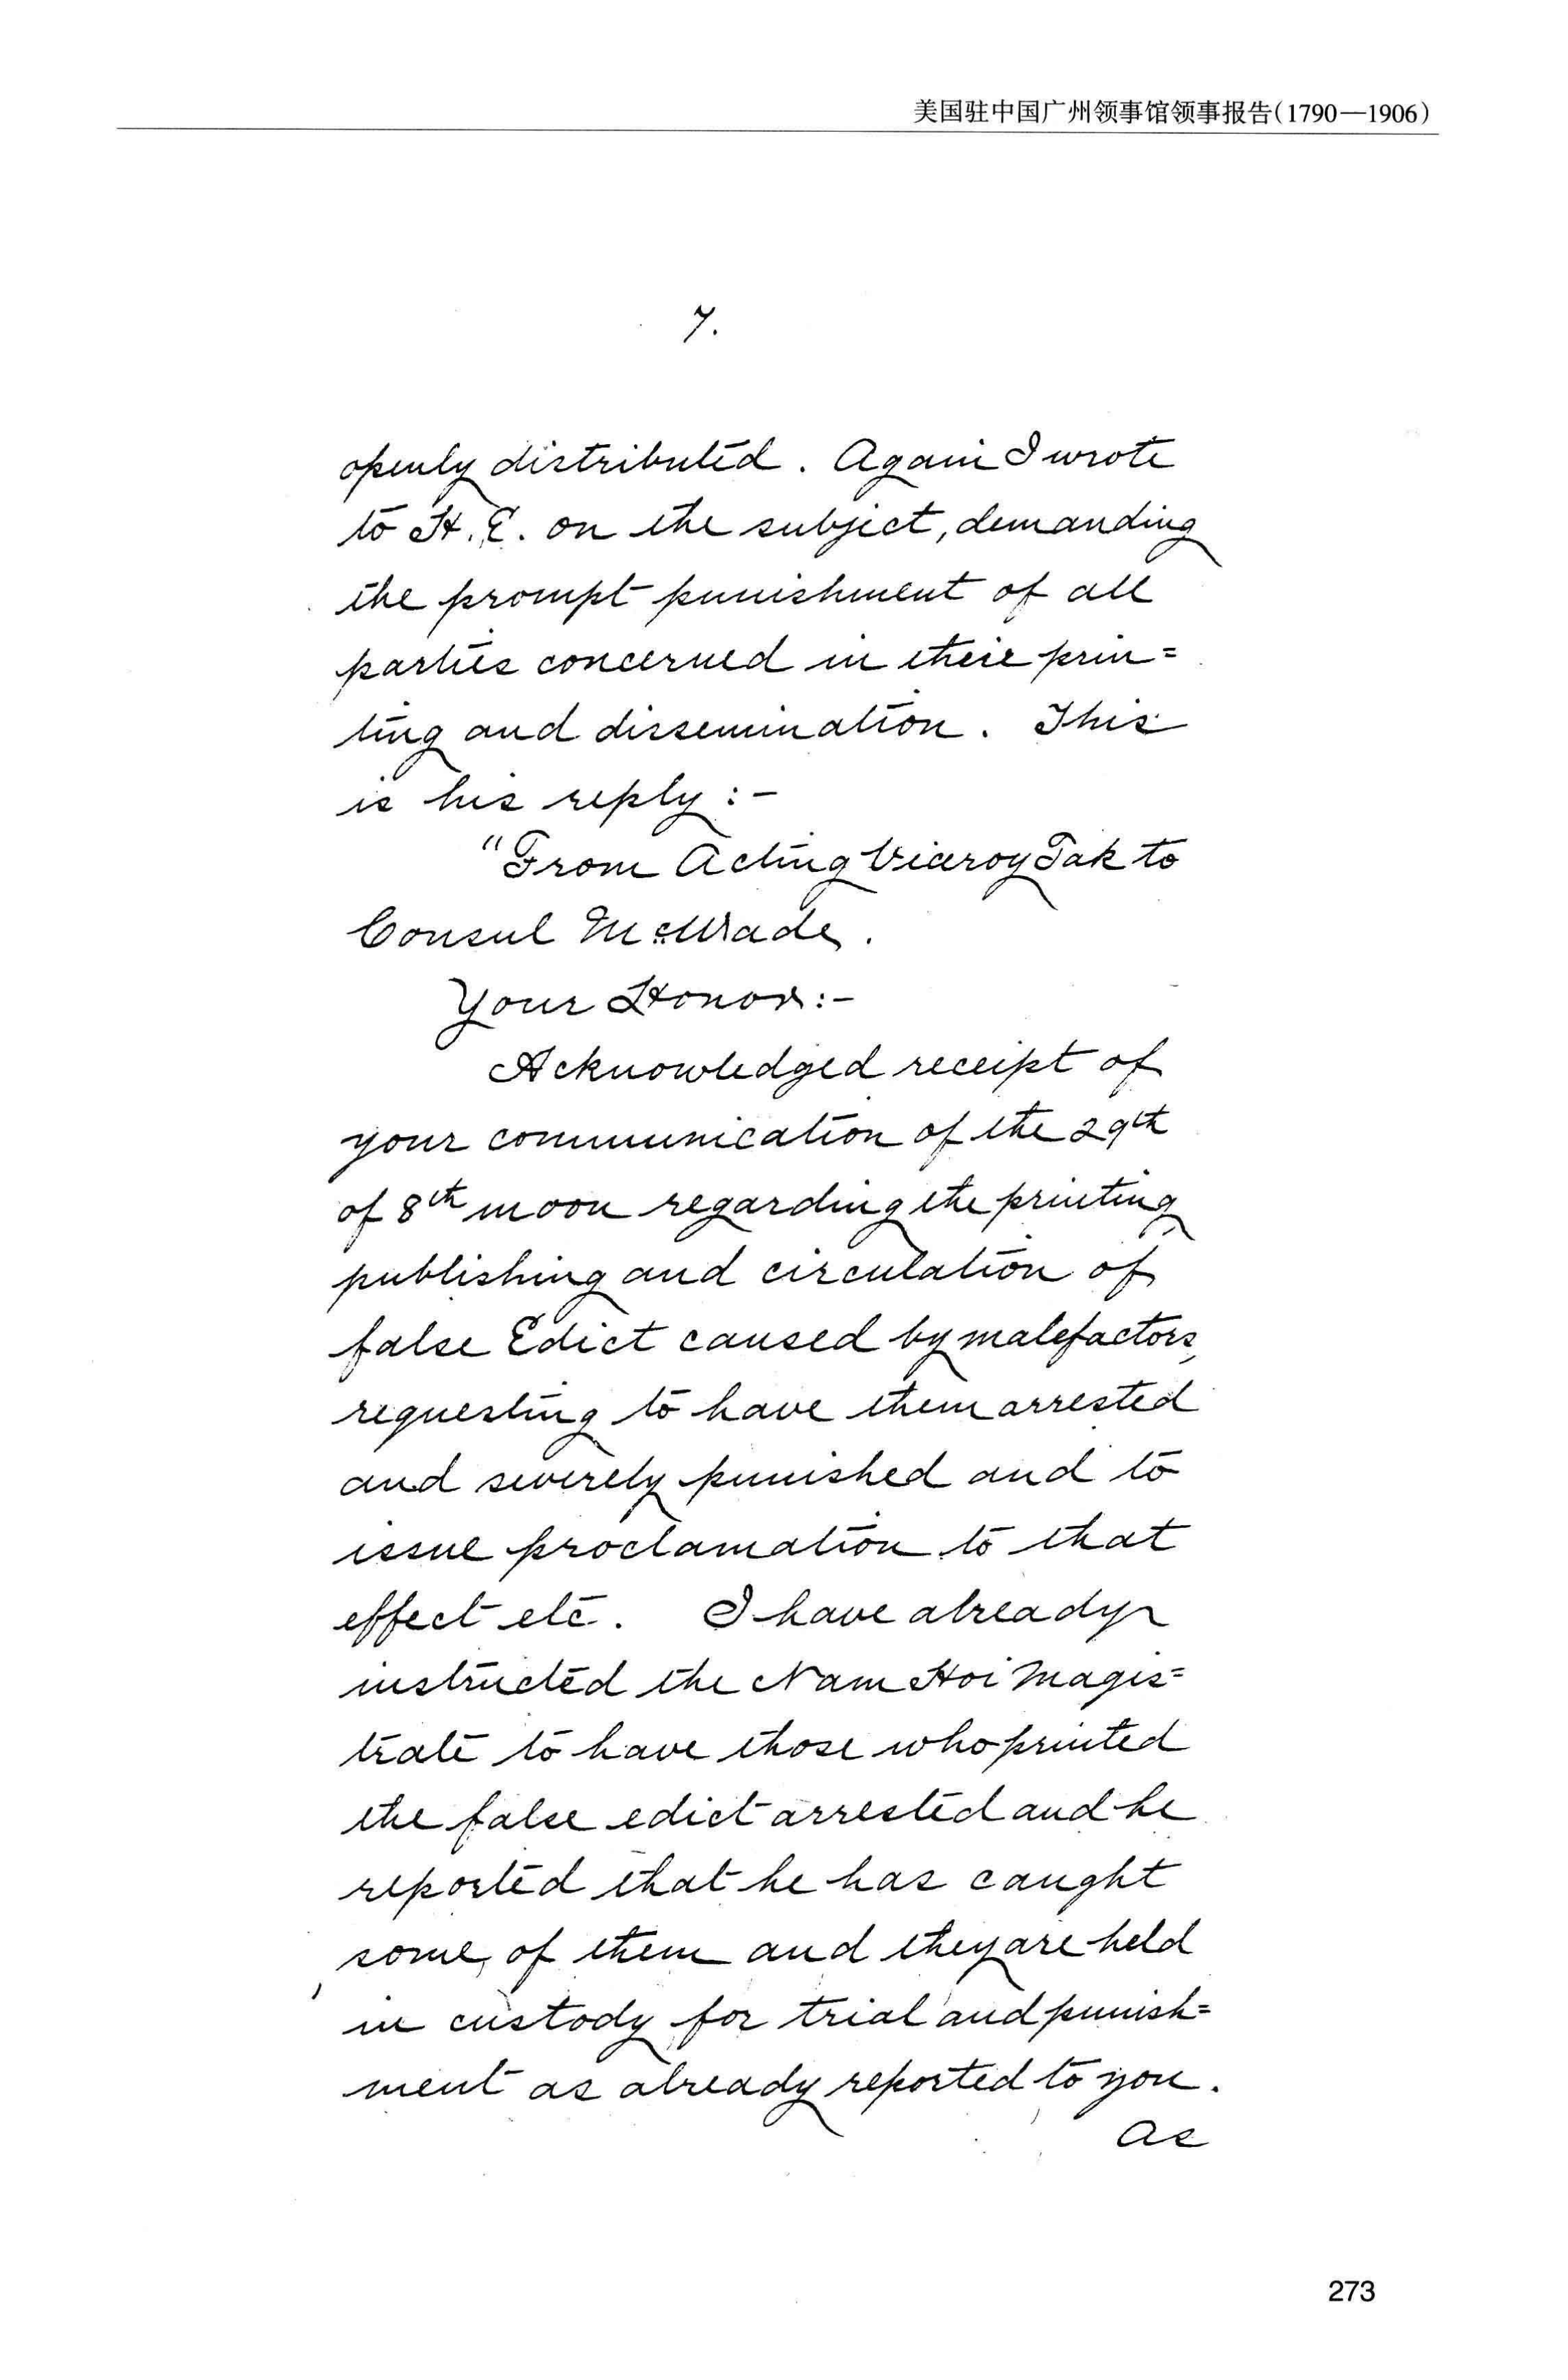 美国驻中国广州领事馆领事报告(1790—1906)
7.
openly distributed. Again I wrote
to H. E. on the subject, demanding
the prompt punishment of all
parties concerned in their prin=
ting and dissemination. This
is his reply:-
"From Acting Viceroy Tak to
Consul McWade.
Your Honor:-
Acknowledged receipt of
your communication of the 29th
of 8th moon regarding the printing
publishing and circulation of
false Edict caused by malefactors,
requesting to have them arrested
and severely punished and to
issue proclamation to that
effect etc. I have already
instructed the Nam Hoi Magis=
trate to have those who printed
the false edict arrested and he
reported that he has caught
some of them and they are held
in custody for trial and punish=
ment as already reported to you.
As
273